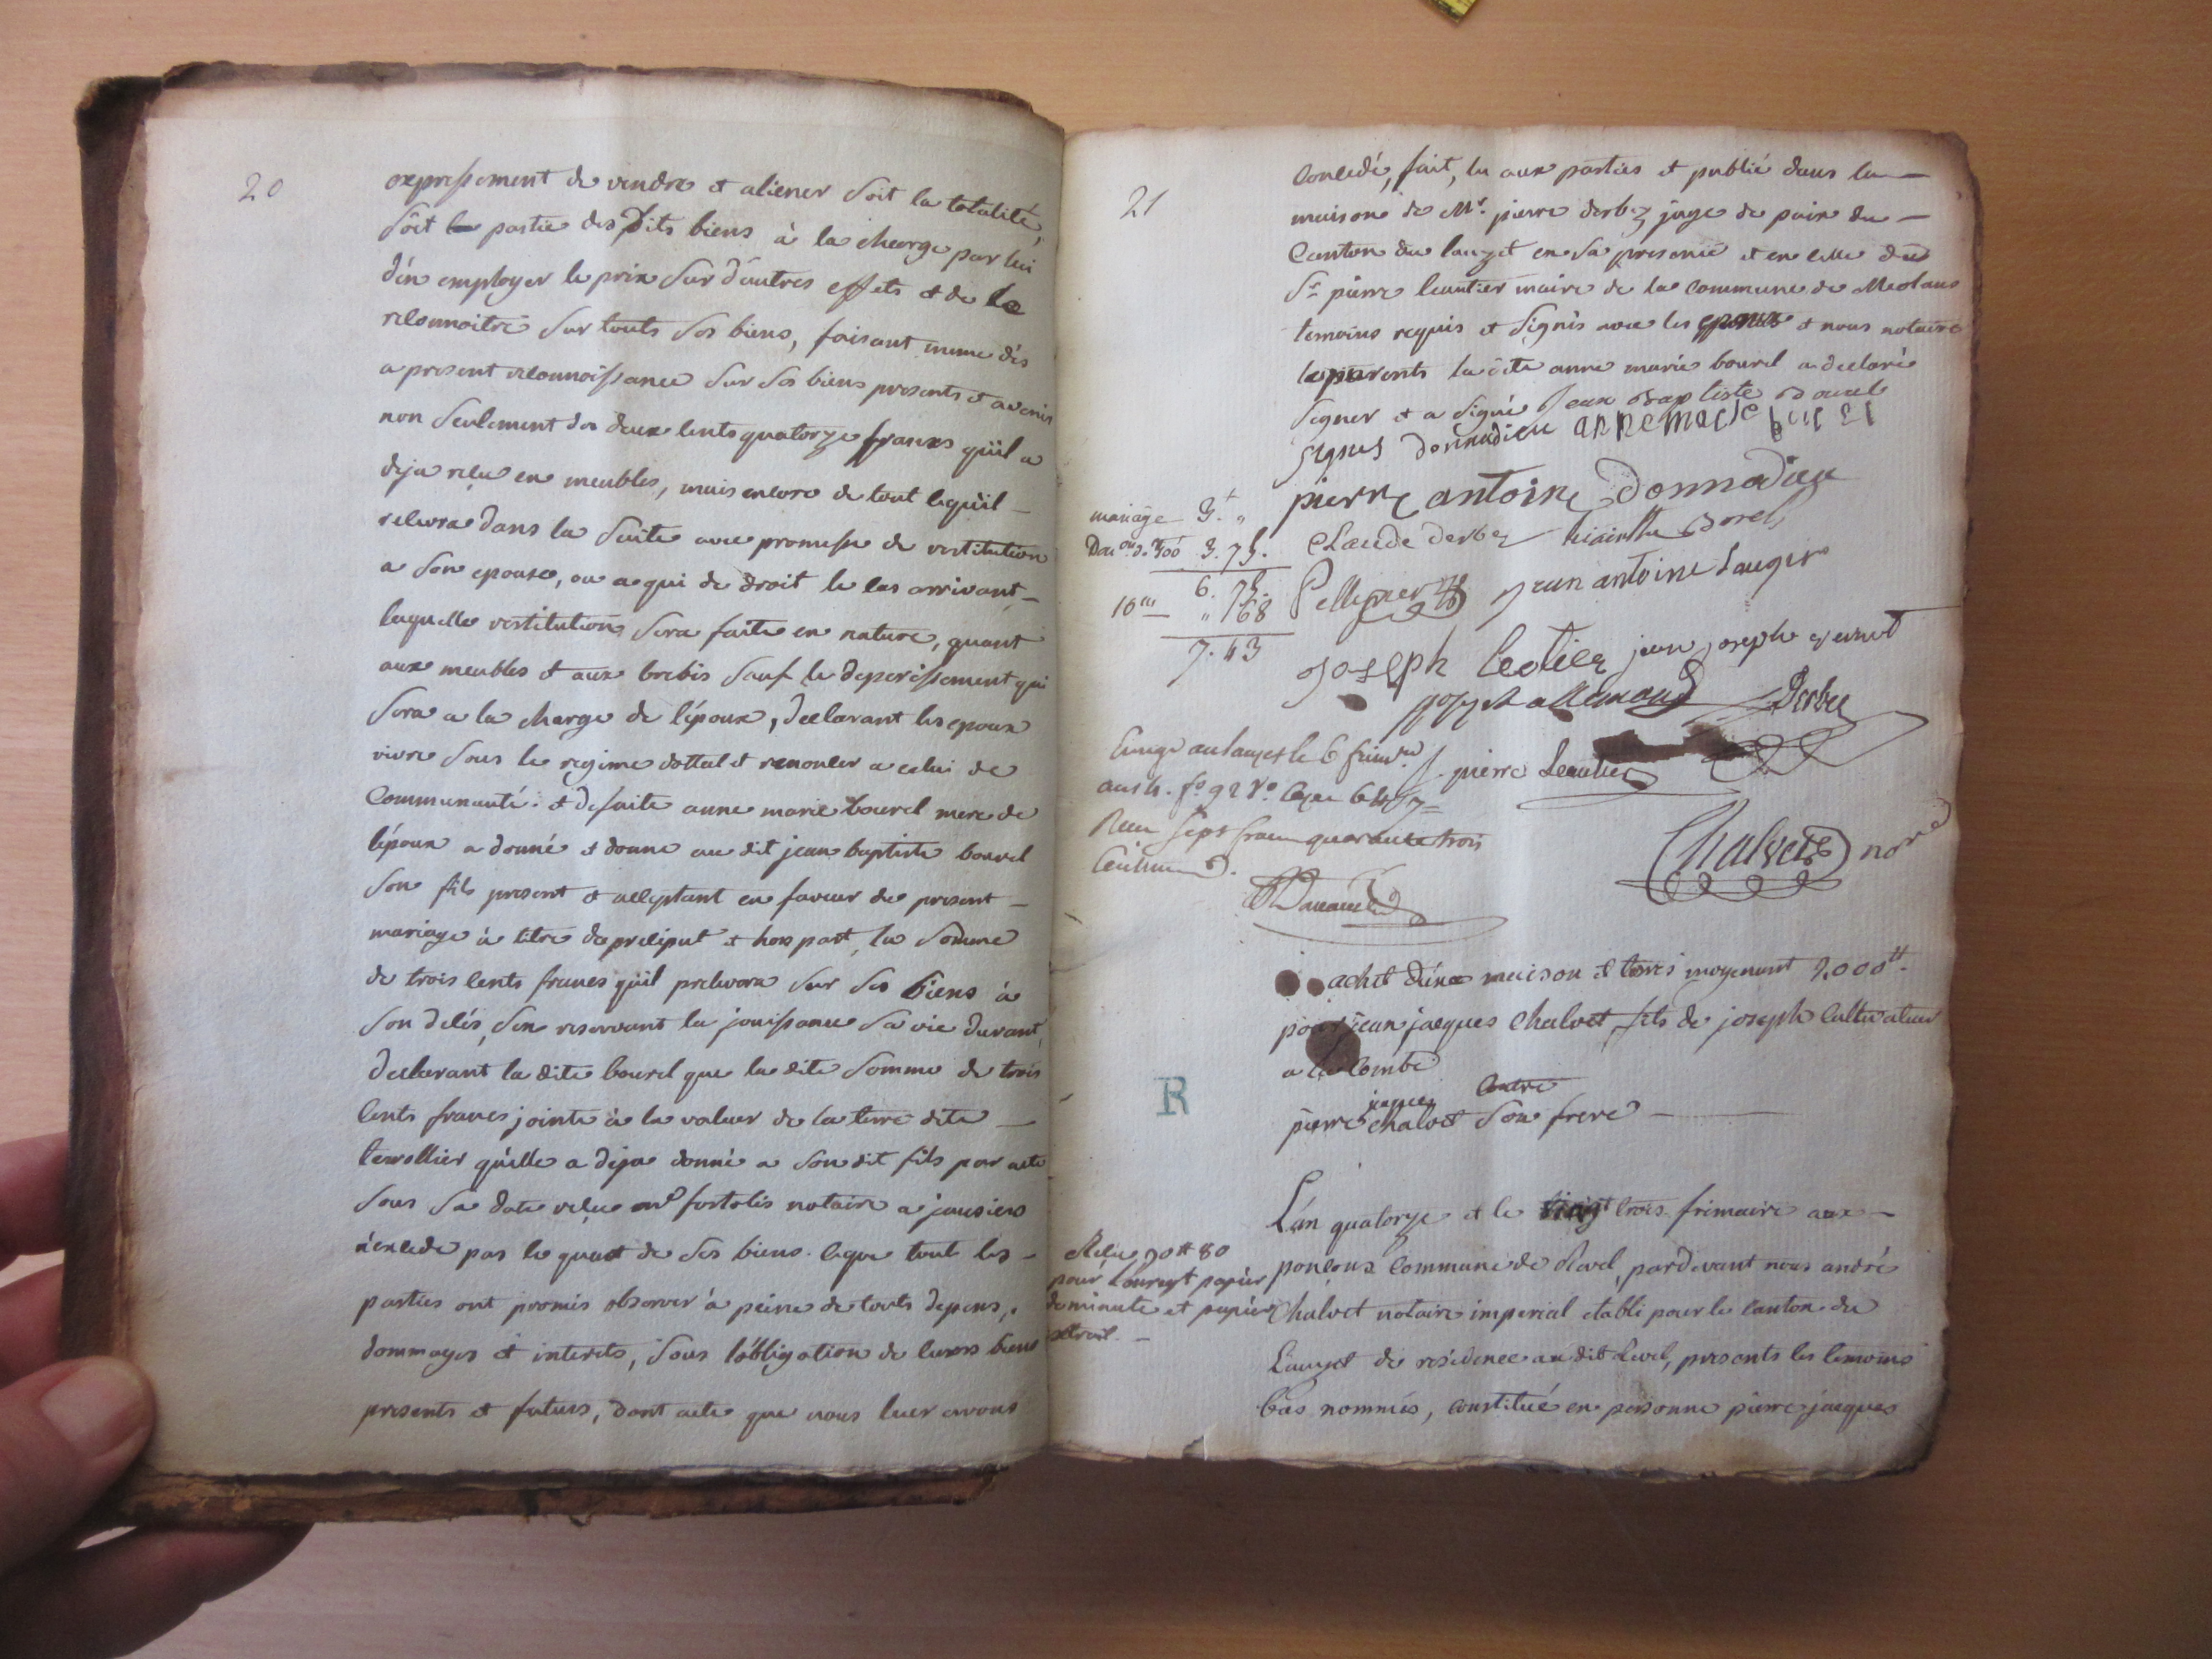 20
expressement de vendre et aliener soit la totalité,
soit partie des dits biens à la charge par lui
d'en employer le prix sur d'autres effets et de le
reconnoitre sur touts ses biens, faisant meme dès
a present reconnoissance sur ses biens presents et avenir
non seulement des deux cents quatorze francs qu'il a
deja reçu en meubles, mais encore de tout ce qu'il
recevra dans la suite avec promesse de restitution
a son epouse, ou a qui de droit le cas arrivant,
laquelle restitution sera faite en nature, quant
aux meubles et aux brebis sauf le deperissement qui
sera a la charge de l'époux, declarant les epoux
vivre sous le regime dottal et renoncer a celui de
communauté. et de suite anne marie bourel mere de
l'époux a donné et donne au dit jean baptiste bourel
son fils present et acceptant en faveur du present
mariage à titre de preciput et hors part, la somme
de trois cents francs qu'il prelevera sur ses biens à
son decés, s'en reservant la jouissance sa vie durant,
declarant la dite bourel que la dite somme de trois
cents francs jointe à la valeur de la terre dite
qu'elle a deja donné a son dit fils par acte
sous sa date reçue me fortolis notaire a jausiers
n'excede pas le quart de ses biens. ce que tout les
parties ont promis observer à peine de touts depens,
dommages et interets, sous l'obligation de leurs biens
presents et futurs, dont acte que nous leur avons
21
concedé, fait, lu aux parties et publié dans la
maison de Mr. pierre derbez juge de paix du
canton du lauzet en sa presence et en celle du
Sr pierre leautier maire de la commune de Meolans
temoins requis et signés avec les epoux et nous notaire
les parents la dite anne marie bourel a declaré
signer et a signé jean baptiste bourel
agnes donnadieu anne marie
pierre antoine donnadieu
mariage 3. "
Don on d. 300 3. 75.
6. 75.
10me " 68
7. 43
Claude derbez hiacinthe borel
Pellegrier jean antoine Lauger
joseph leotier jean joseph
joseph allemand Derbez
Enregé au lauzet le 6 frimre
an 14. fo 92 Vo
Reçu sept francs quarante trois
centimes.
pierre Leautier
Chalvet nore
achet d'une maison et terres moyenant 2,000tt.
pour jean jacques chalvet fils de joseph cultivateur
a la combe
contre
pierre jacques chalvet son frere
R
L'an quatorze et le vingt trois frimaire aux
ponçons commune de Revel, pardevant nous andré
chalvet notaire imperial etabli pour le canton du
Lauzet de residence au dit Revel, presents les temoins
bas nommés, constitué en personne pierre jacques
Reçu 90tt 80
pour l'enregt papier
de minute et papier
extrait.